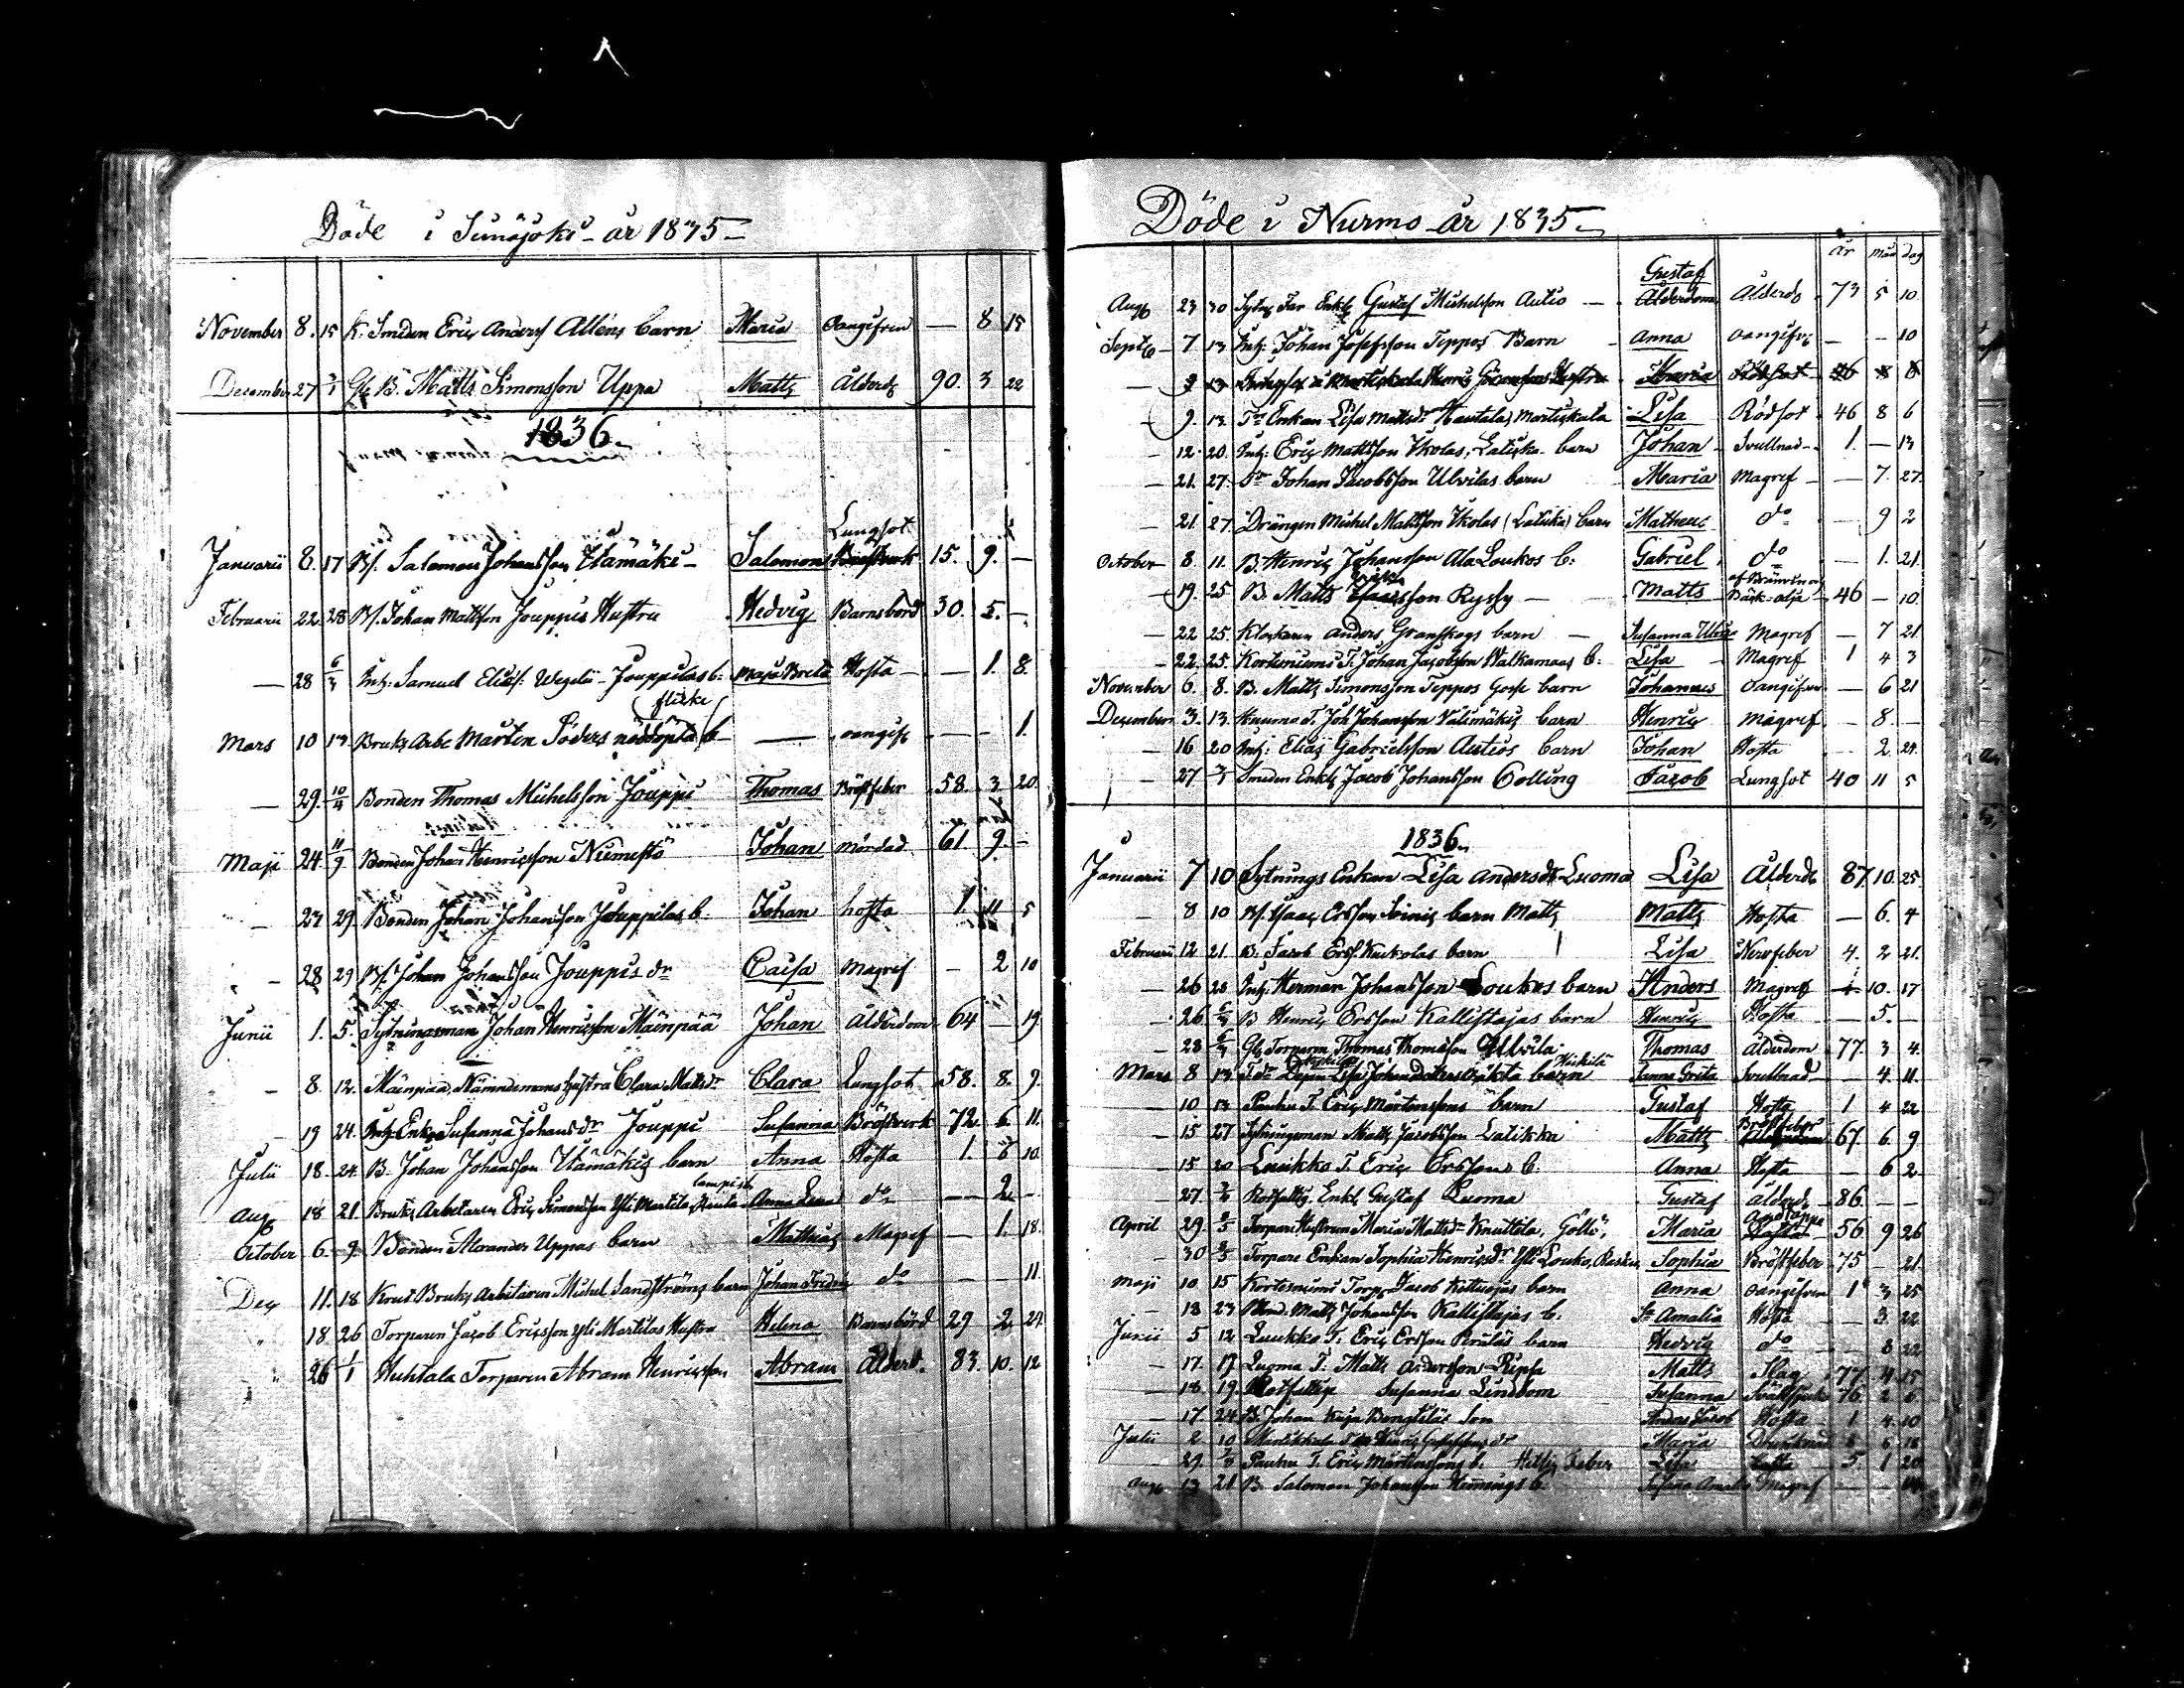 Döde i Senäjoki år 1835
November 8. 15 K. Smeden Eric Anders Allens barn Maria oangifven — 8 15
December 27 3/1 Gl. B. Matts Simonsson Uppa Matts Ålderd 90. 3 22
1836.
Januarii 8. 17 Salomon Johansson Itämäki Salomon Lungsot 15. 9. —
Februarii 22. 28 Johan Mattsson Jouppis Hustru Hedvig Barnsbörd 30. 5. —
— 28 6/3 Inh. Samuel Elias. Wegeli Jouppilas b. Maja Brita Hosta — 1. 8.
flicka
Mars 10 13 Bruks Arbe Mårten Söders nöddöpta b — oangif — — 1.
— 29. 10/4 Bonden Thomas Michelsson Jouppi Thomas Bröstfeber 58. 3. 20.
Maji 24 11/9 Bonden Johan Henricsson Niemestö Johan mördad 61 9. —
— 23 29. Bonden Johan Johansson Jouppilas b. Johan hosta 1. 11 5
— 28 29 Johan Johansson Jouppis dr Caisa Magref — 2 10
Junii 1. 5. Sytningsman Johan Henricsson Mäinpää Johan Ålderdom 64 — 19.
— 8. 12. Mäinpää Nämndemans hustru Clara Mattsdr Clara Lungsot 58. 8. 9.
— 19 24. Inh. Enka Susanna Johansdr Jouppi Susanna Bröstverk 72. 6. 11.
Julii 18. 24. B. Johan Johansson Itämäkis barn Anna Hosta 1. 6 10.
Aug 18 21. Bruks Arbetaren Eric Simonsson Yli Martila Anna Lena do — 2. —
October 6. 9. Bonden Alexander Uppas barn Mathias Magref — 1. 18.
Dec 11. 18 Krut Bruks Arbetaren Michel Sandströms barn Johan Fredric do — — 11.
" 18 26 Torparen Jacob Ericsson Yli Martilas Hustru Helena Barnsbörd 29 2. 27.
" 26 1/1 Huhtala Torparen Abram Henricsson Abram Ålderd. 83. 10. 12
Döde i Nurmo år 1835
år mån dag
Gustaf
Aug 23 30 Sytn Far Enkl Gustaf Michelsson Autio — Ålderdom Ålderdo 73 5 10.
Sept 7 13 Inh. Johan Josefsson Teppos Barn Anna oangifv — — 10
— 9. 13. Enkan Lisa Mattsdr Hautala, Martikala Lisa Rödsot 46 8 6
— 12. 20. Inh. Eric Mattsson Ikolas, Latikka barn Johan Svullnad 1. — 13
— 21. 27. Johan Jacobsson Ulvilas barn Maria Magref — 7. 27.
— 21 27. Drängen Michel Mattsson Ikolas (Latikka) barn Matheus do — 9 2
October 8 11. B. Henric Johansson Ala Loukos b. Gabriel do — 1. 21.
— 19. 25 B. Matts sson Ryssy — Matts af Bränvin och Bäck-olja 46 — 10.
— 22 25. Klockaren Anders Granskogs barn — Susanna Ulrica Magref — 7 21.
— 22. 25. Kortesniemi T. Johan Jacobsson Walkamaas b. Lisa Magref 1 4 3
November 6. 8. B. Matts Simonsson Teppos Gosse barn Johannes oangifven — 6 21
December 3. 13. T. Joh Johansson Välimäkis barn Henric Magref — 8. —
— 16 20 Inh. Elias Gabrielsson Autios barn Johan Hosta — 2. 24.
— 27. 3/1 Smeden Enkl Jacob Johansson Colling Jacob Lungsot 40 11 5
1836.
Januarii 7 10 Sytnings Enkan Lisa Andersdr Luoma Lisa Ålderd 87. 10. 25.
— 8 10 Isaac Ersson barn Matts Matts Hosta — 6. 4
Februarii 12 21. B. Jacob Erss. Kuckolas barn Lisa Nervfeber 4. 2 21.
— 26 28 Inh. Herman Johansson Loukos barn Anders Magref 10. 17
— 26 6/3 B Henric Ersson Kallistajas barn Henric Hosta — 5. —
— 28 6/3 Gl. Torparen Thomas Thomasson Ulvila Thomas Ålderdom 77. 3 4.
Mars 8 13 Lisa Johansdotters oäkta barn Sanna Greta Svullnad — 4. 11.
— 10 13 Pauhu T. Eric Mårtenssons barn Gustaf Hosta 1 4 22
— 15 27 Sytningsman Matts Jacobsson Latikka Matts Bröstfeber 67. 6. 9
— 15 20 Luukko T. Eric Erssons b. Anna Hosta — 6 2.
— 27 Rotfattig. Enkl Gustaf Luoma Gustaf Ålderd 86. — —
April 29 8/5 Torpare Hustrun Maria Mattsdr Knuttila, Maria 56. 9 26
— 30 8/5 Torpare Enkan Sophia Henricsdr Yli Louko, Sophia Bröstfeber 75 — 21.
Maji 10 15 Kortesniemi Torp Jacob barn Anna oangifven 1 3 25
— 18 23 Matts Johansson Kallistajas b. Amalia Hosta — 3. 22
Junii 5 12 Luukko T. Eric Ersson barn Hedvig do — 8 22
— 17. 17 Luoma T. Matts Andersson Matts 77. 4. 15
— 18 19. Rotfattig Susanna Lindbom Susanna 76. 2
— 17 24 B. Johan Bengtiläs Son Anders Jacob Hosta 1 4. 10
Julii 2 10 Maria
— 29. Pauhu T. Eric Mårtenssons b. Lisa 5. 1 20
Aug 13 21 B. Salomon Johansson Hemmings b. Susanna Amalia Magref — —